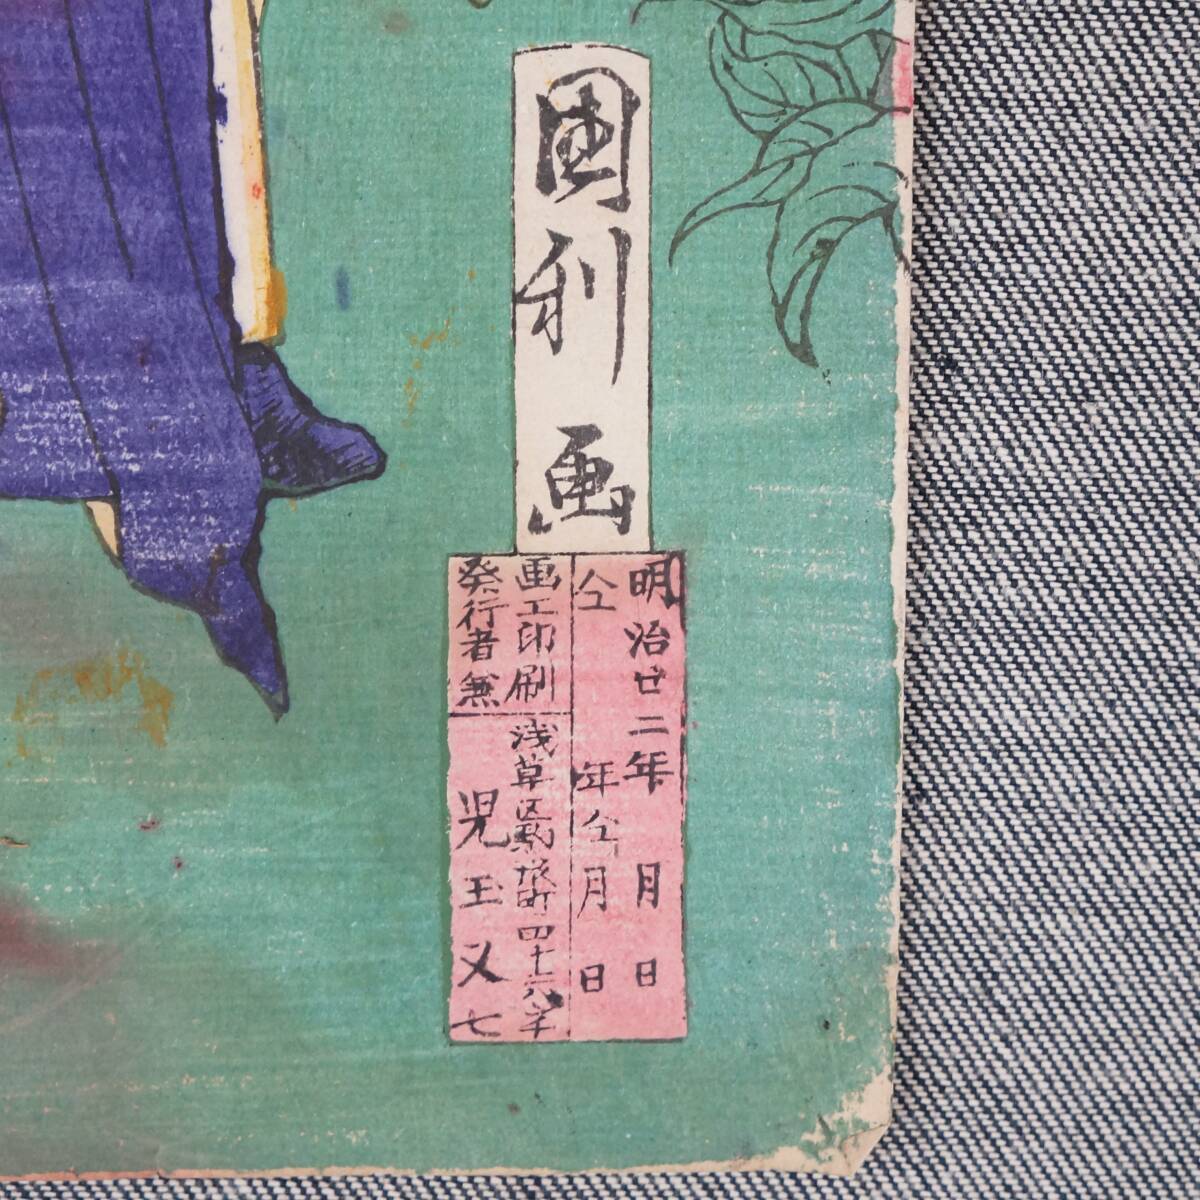 国利画
明治廿二年 月 日
仝 年仝月 日
画工印刷
発行者兼
浅草区 旅町四十六
児玉又七